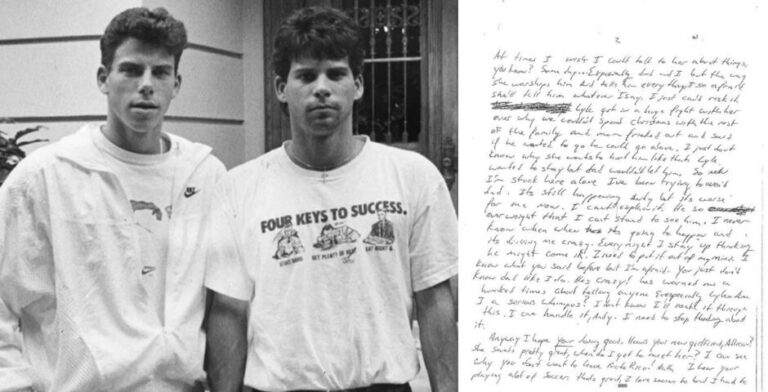 NIKE
FOUR KEYS TO SUCCESS.
STUDY HARD GET PLENTY OF REST EAT RIGHT &
2
At times I wish I could talk to her about things,
you know? Some day. Especially dad and I but the way
she worships him and tells him everything I so afraid
she'll tell him whatever I say. I just can't risk it
Lyle got in a huge fight with her
over why we couldn't spend christmas with the rest
of the family and mom freaked out and said
if he wanted to go he could go alone. I just don't
know why she wants to hurt him like that Lyle
wanted to stay but dad wouldn't let him. So now
I'm stuck here alone I've been trying to avoid
dad. Its still happening Andy but its worse
for me now. I can't explain it. He so
overweight that I can't stand to see him. I never
know when its going to happen and
its driving me crazy. Every night I stay up thinking
he might come in. I need to put it out of my mind. I
know what you said before but I'm afraid. You just don't
know dad like I do. Hes crazy! hes warned me a
hundred times about telling anyone Especially Lyle. Am
I a serious whimpus? I don't know I'll make it through
this. I can handle it, Andy. I need to stop thinking about
it.
Anyway I hope your doing good. Hows your new girlfriend,
She sounds pretty great, when do I get to meet her? I can see
why you don't want to leave Puerto Rico! I hear your
playing alot of soccer thats great, I love soccer to but I had to